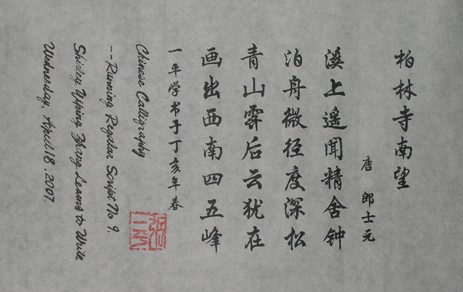 柏林寺南望
唐 郎士元
溪上遥闻精舍钟
泊舟微径度深松
青山霁后云犹在
画出西南四五峰
一平学书于丁亥年春
Chinese Calligraphy
--Running Regular Script No 9.
Shirley Yiping Zhang Learns to Write
Wednesday, April 18, 2007.